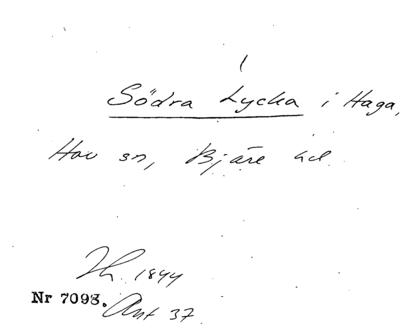 Södra Lycka i Haga,
Hov sn, Bjäre hd
Th. 1844
Nr 7098. Ant 37.